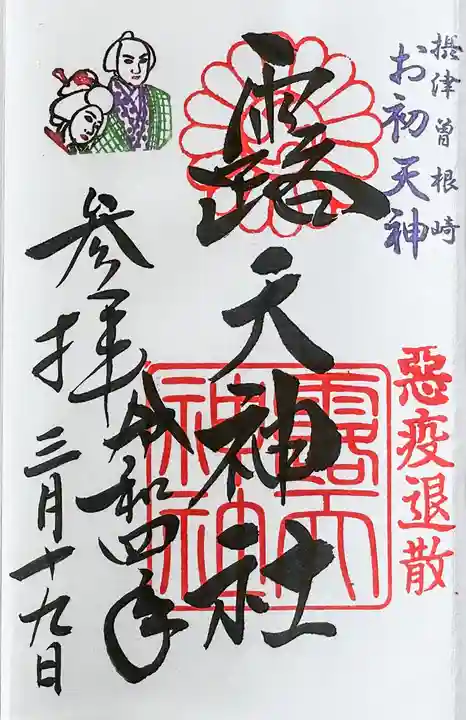 摂津曽根崎
お初天神
悪疫退散
露天神社
露天
神社
令和四年
参拝
三月十九日